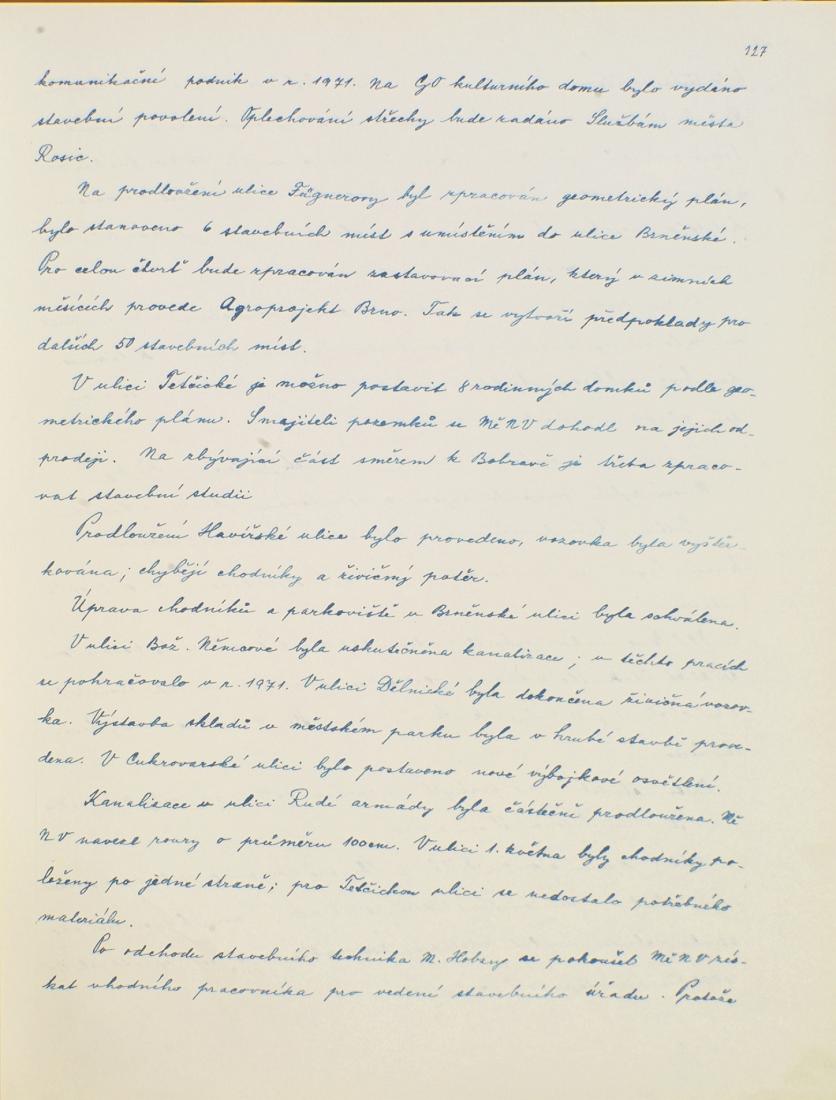 127
komunikační podnik v r. 1971. Na GO kulturního domu bylo vydáno
stavební povolení. Oplechování střechy bude zadáno Službám města
Rosic.
Na prodloužení ulice Fügnerovy byl zpracován geometrický plán,
bylo stanoveno 6 stavebních míst s umístěním do ulice Brněnské.
Pro celou čtvrť bude zpracován zastavovací plán, který v zimních
měsících provede Agroprojekt Brno. Tak se vytvoří předpoklady pro
dalších 50 stavebních míst.
V ulici Tetčické je možno postavit 8 rodinných domků podle geo-
metrického plánu. S majiteli pozemků se MěNV dohodl na jejich od-
prodeji. Na zbývající část směrem k Bobravě je třeba zpraco-
vat stavební studii
Prodloužení Havířské ulice bylo provedeno, vozovka byla vyštěr-
kována; chybějí chodníky a živičný potěr.
Úprava chodníků a parkoviště v Brněnské ulici byla schválena.
V ulici Bož. Němcové byla uskutečněna kanalizace; v těchto pracích
se pokračovalo v r. 1971. V ulici Dělnické byla dokončena živičná vozov-
ka. Výstavba skladů v městském parku byla v hrubé stavbě prove-
dena. V Cukrovarské ulici bylo postaveno nové výbojkové osvětlení.
Kanalisace v ulici Rudé armády byla částečně prodloužena. Mě
NV navezl roury o průměru 100 cm. V ulici 1. května byly chodníky po-
loženy po jedné straně; pro Tetčickou ulici se nedostalo potřebného
materiálu.
Po odchodu stavebního technika M. Hobzy se pokoušel MěNV zís-
kat vhodného pracovníka pro vedení stavebního úřadu. Protože